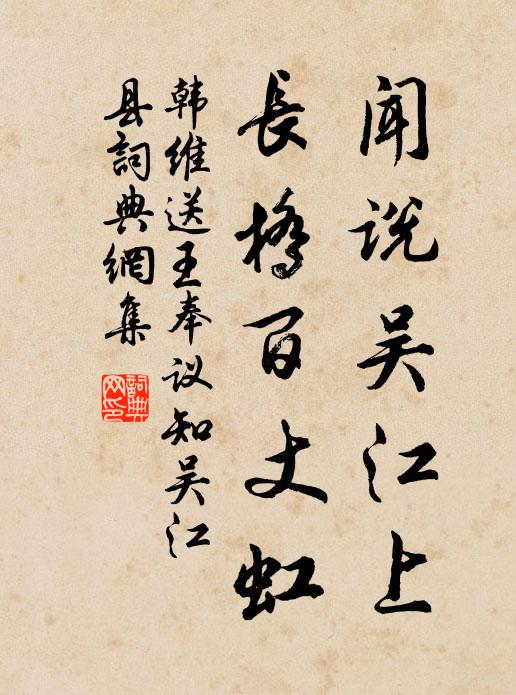 闻说吴江上
長橋百丈虹
韩维送王奉议知吴江
县詞典網集
詞典
网印